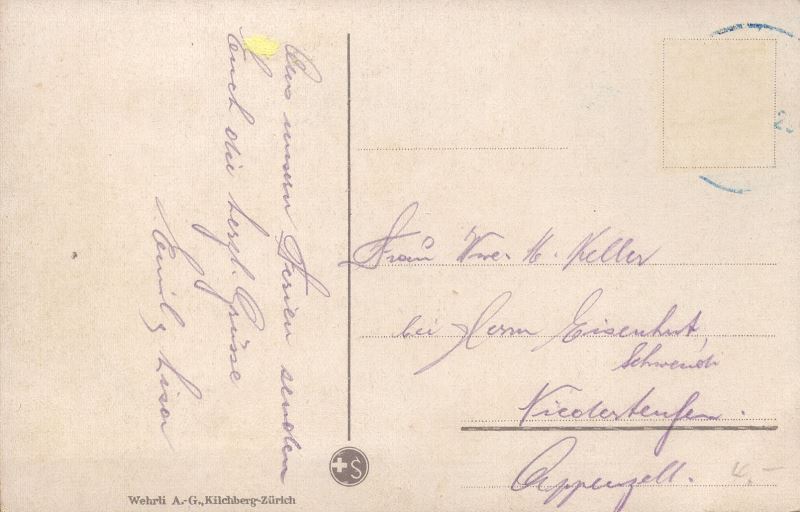 Aus unsern Ferien senden
Euch die herzl. Grüsse
Emil & Lisa
Frau Wwe. M. Keller
bei Herrn Eisenhut,
Schwendi
Niederteufen.
Appenzell.
4.-
S
Wehrli A.-G., Kilchberg-Zürich